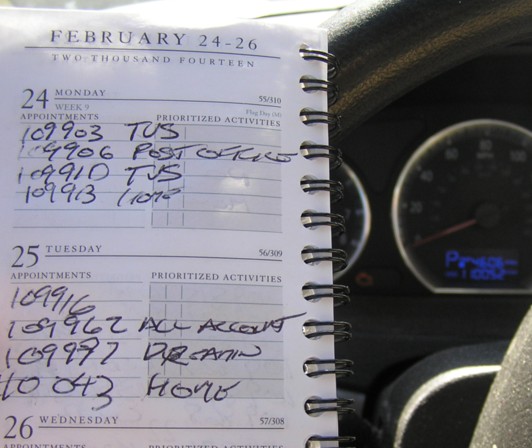 FEBRUARY 24-26
TWO THOUSAND FOURTEEN
24 MONDAY 55/310
WEEK 9
APPOINTMENTS PRIORITIZED ACTIVITIES
109903 TUS
109906 POST OFFICE
109910 TUS
109913 HOME
25 TUESDAY 56/309
APPOINTMENTS PRIORITIZED ACTIVITIES
109916
109962 ALL ACCOUNT
109997
110043 HOME
26 WEDNESDAY 57/308
APPOINTMENTS PRIORITIZED ACTIVITIES